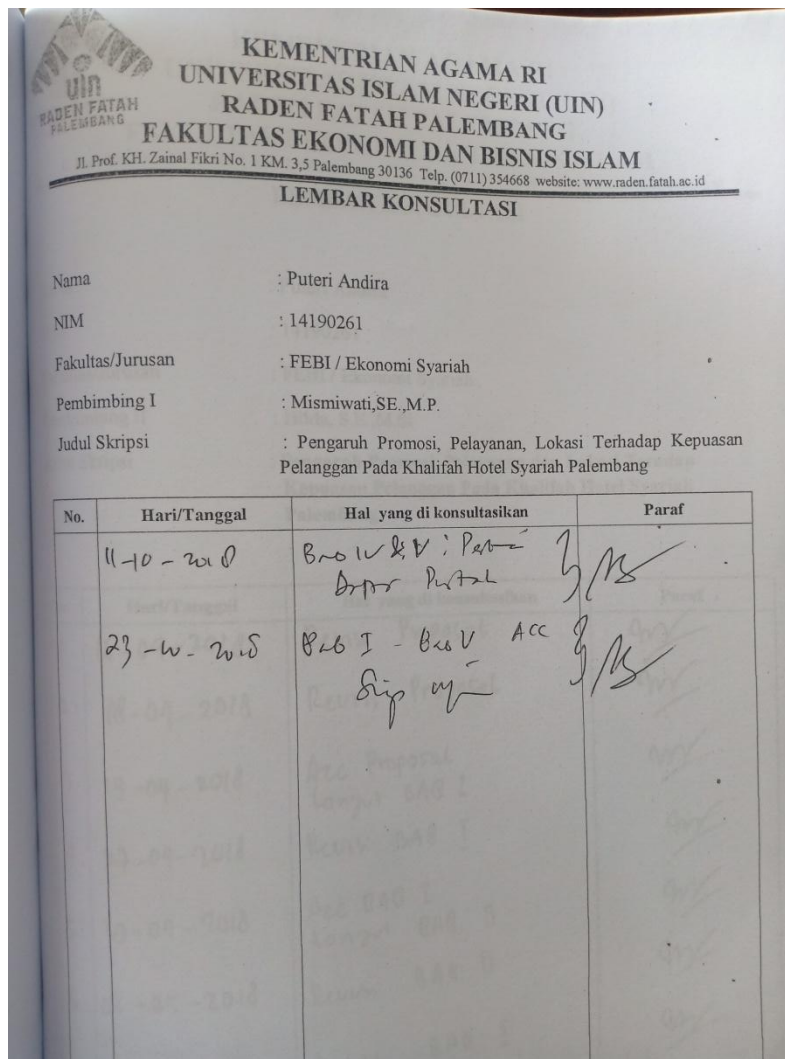 uin
RADEN FATAH
PALEMBANG
KEMENTRIAN AGAMA RI
UNIVERSITAS ISLAM NEGERI (UIN)
RADEN FATAH PALEMBANG
FAKULTAS EKONOMI DAN BISNIS ISLAM
Jl. Prof. KH. Zainal Fikri No. 1 KM. 3,5 Palembang 30136 Telp. (0711) 354668 website: www.raden.fatah.ac.id
LEMBAR KONSULTASI
Nama : Puteri Andira
NIM : 14190261
Fakultas/Jurusan : FEBI / Ekonomi Syariah
Pembimbing I : Mismiwati,SE.,M.P.
Judul Skripsi : Pengaruh Promosi, Pelayanan, Lokasi Terhadap Kepuasan
Pelanggan Pada Khalifah Hotel Syariah Palembang
No. Hari/Tanggal Hal yang di konsultasikan Paraf
11-10-2018 Bab IV & V :
23-10-2018 Bab I - Bab V ACC